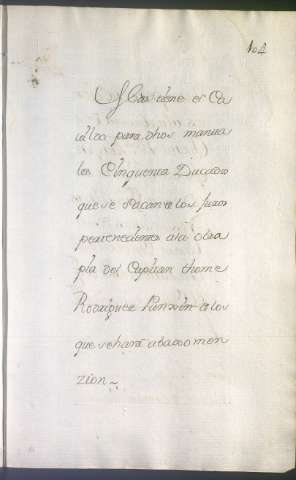 104
tiene el Ca
para dhos manua
les Cinquenta Ducados
que se sacan de los Juros
pertenecientes a la obra
pia del Capitan thome
Rodriguez de los
que se hara abaxo men
zion